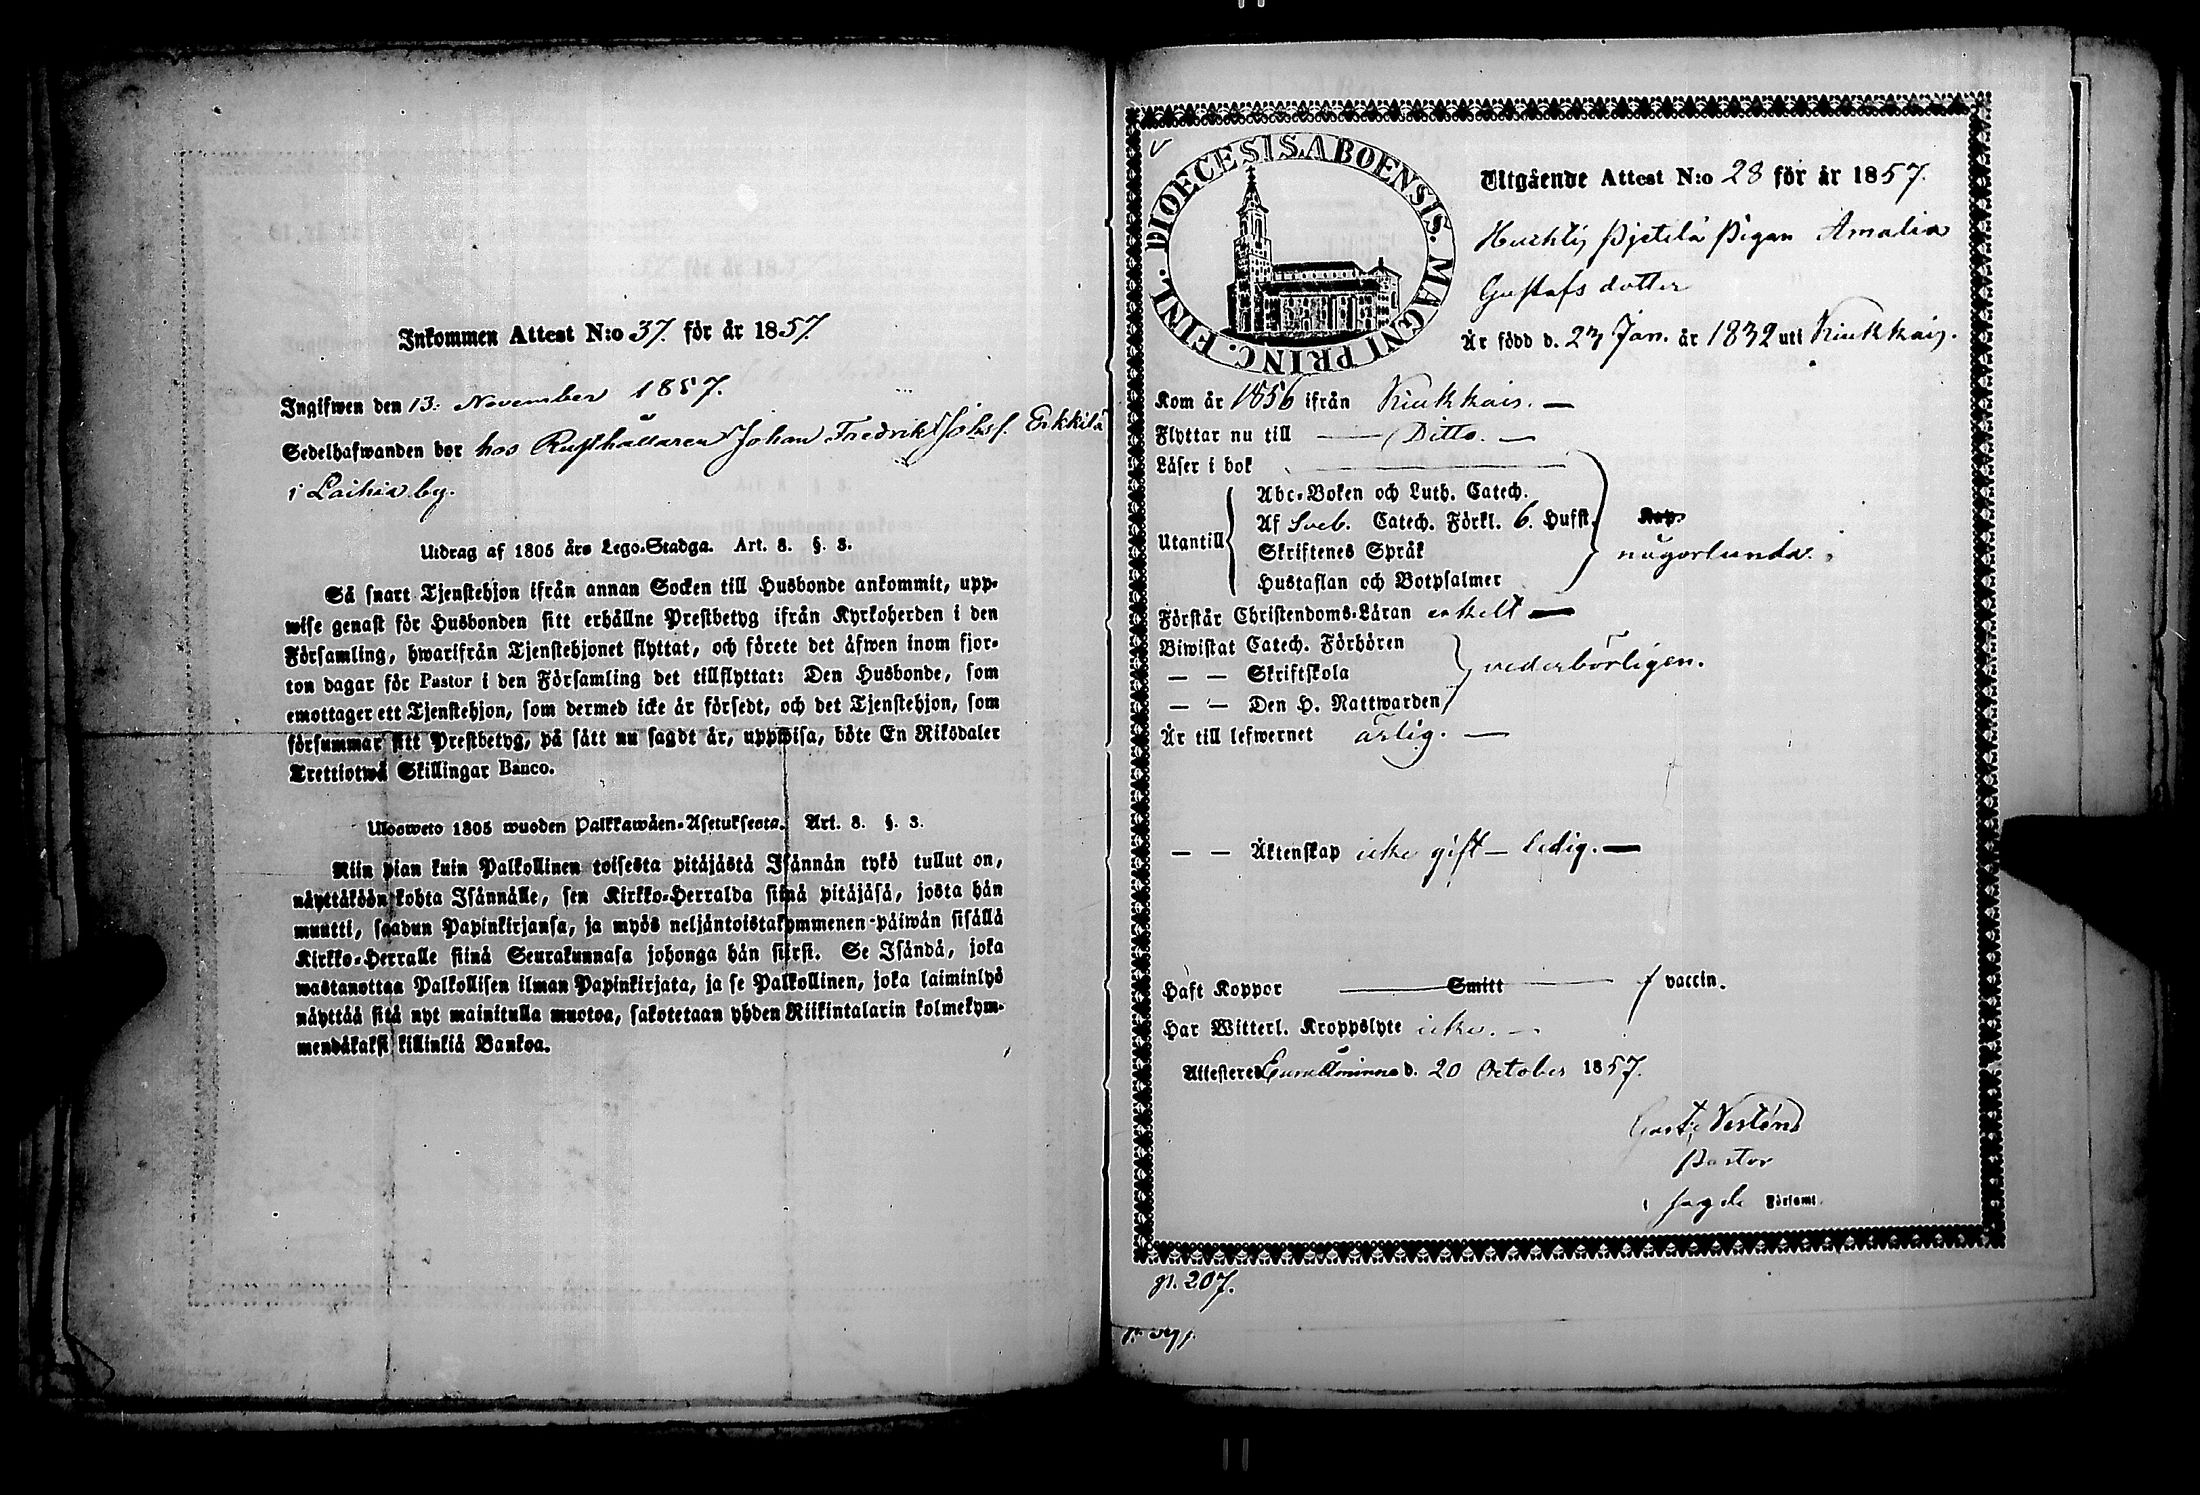 Inkommen Attest N:o 37. för år 1857.
Ingifwen den 13. November 1857.
Sedelhafwanden bor hos Rusthållaren Johan Fredrik Johsf. Erkkilä
i Laihia by.
Utdrag af 1805 års Lego-Stadga. Art. 8. §. 3.
Så snart Tjenstehjon ifrån annan Socken till Husbonde ankommit, upp-
wise genast för Husbonden sitt erhållne Prestbetyg ifrån Kyrkoherden i den
Församling, hwarifrån Tjenstehjonet flyttat, och förete det äfwen inom fjor-
ton dagar för Pastor i den Församling det tillflyttat: Den Husbonde, som
emottager ett Tjenstehjon, som dermed icke är försedt, och det Tjenstehjon, som
försummar sitt Prestbetyg, på sätt nu sagdt är, uppwisa, böte En Riksdaler
Trettiotwå Skillingar Banco.
Ulosweto 1805 wuoden Palkkawäen-Asetuksesta. Art. 8. §. 3.
Niin pian kuin Palkollinen toisesta pitäjästä Isännän tykö tullut on,
näyttäköön kohta Isännälle, sen Kirkko-Herralda siinä pitäjäsä, josta hän
muutti, saadun Papinkirjansa, ja myös neljäntoistakymmenen-päiwän sisällä
Kirkko-Herralle siinä Seurakunnasa johonga hän siirsi. Se Isändä, joka
wastanottaa Palkollisen ilman Papinkirjata, ja se Palkollinen, joka laiminlyö
näyttää sitä nyt mainitulla muotoa, sakotetaan yhden Riikintalarin kolmekym-
mendäkaksi killinkiä Bankoa.
DIOECESIS. ABOENSIS. MAGNI PRINC. FINL.
Utgående Attest N:o 28 för år 1857.
Pigan Amalia
Gustafs dotter
Är född d. 23 Jan. år 1832 uti Kiukkais.
Kom år 1856 ifrån Kiukkais. —
Flyttar nu till — Ditto. —
Läser i bok
Abc-Boken och Luth. Catech.
Af Sveb. Catech. Förkl. 6. Hufst.
Utantill
någorlunda.
Skriftenes Språk
Hustaflan och Botpsalmer
Förstår Christendoms-Läran enkelt —
Biwistat Catech. Förhören
— — Skriftskola
vederbörligen.
— — Den H. Nattwarden
Är till lefwernet ärlig. —
— — Äktenskap icke gift — ledig. —
Haft Koppor Smitt vaccin.
Har Witterl. Kroppslyte icke. —
Attesteras Eura Åminne d. 20 October 1857.
Gust. Vestlöns
Pastor
i sagde Församl.
p. 207.